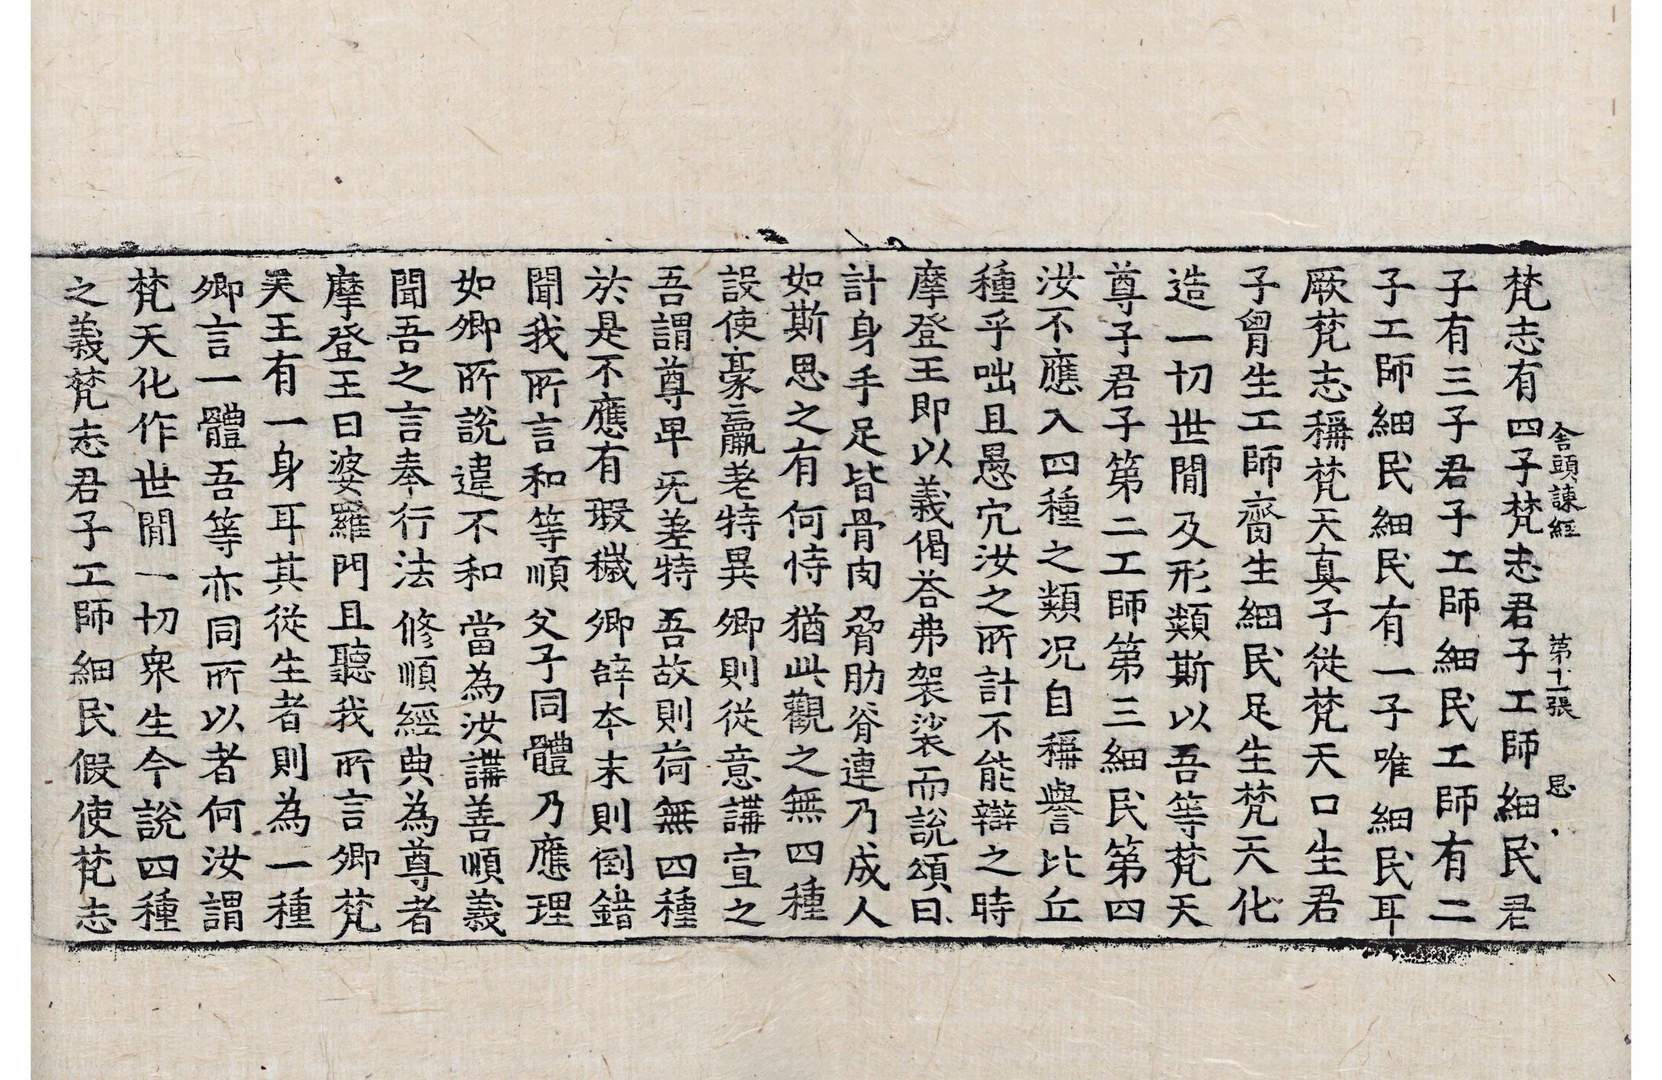 舍頭諫經 第十一張 思
梵志有四子梵志君子工師細民君
子有三子君子工師細民工師有二
子工師細民細民有一子唯細民耳
厥梵志稱梵天真子從梵天口生君
子𦙄生工師齎生細民足生梵天化
造一切世閒及形類斯以吾等梵天
尊子君子第二工師第三細民第四
汝不應入四種之類况自稱譽比丘
種乎咄且愚冗汝之所計不能辯之時
摩登王即以義偈荅弗袈裟而說頌曰
計身手足皆骨肉脅肋脊連乃成人
如斯思之有何恃猶此觀之無四種
設使豪羸老特異卿則從意講宣之
吾謂尊卑旡差特吾故則荷無四種
於是不應有瑕穢卿辝本末則倒錯
聞我所言和等順父子同體乃應理
如卿所説違不和當為汝講善順義
聞吾之言奉行法修順經典為尊者
摩登王曰婆羅門且聽我所言卿梵
昊王有一身耳其從生者則為一種
卿言一體吾等亦同所以者何汝謂
梵天化作世閒一切衆生今說四種
之義梵志君子工師細民假使梵志